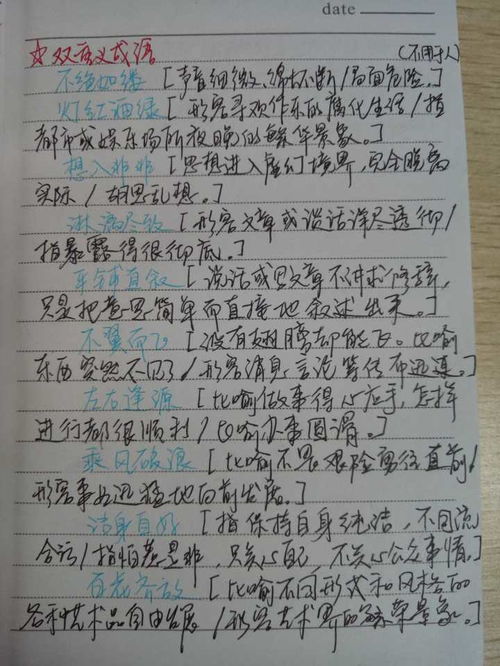 date
☆双语义成语 (不用于人)
不绝如缕 [声音细微、绵绵不断/局面危险。]
灯红酒绿 [形容寻欢作乐的腐化生活/指
都市或娱乐场所夜晚的繁华景象。]
想入非非 [思想进入虚幻境界,完全脱离
实际/胡思乱想。]
淋漓尽致 [形容文章或谈话详尽透彻/
指暴露得很彻底。]
平铺直叙 [说话或写文章不讲求修辞,
只是把意思简单而直接地叙述出来。]
不翼而飞 [没有翅膀却能飞。比喻
东西突然不见了/形容消息、言论等传布迅速。]
左右逢源 [比喻做事得心应手,怎样
进行都很顺利/比喻办事圆滑。]
乘风破浪 [比喻不畏艰险勇往直前/
形容事业迅猛地向前发展。]
洁身自好 [指保持自身纯洁,不同流
合污/指怕惹是非,只关心自己,不关心公众事情。]
百花齐放 [比喻不同形式和风格的
各种艺术品自由发展/形容艺术界的繁荣景象。]